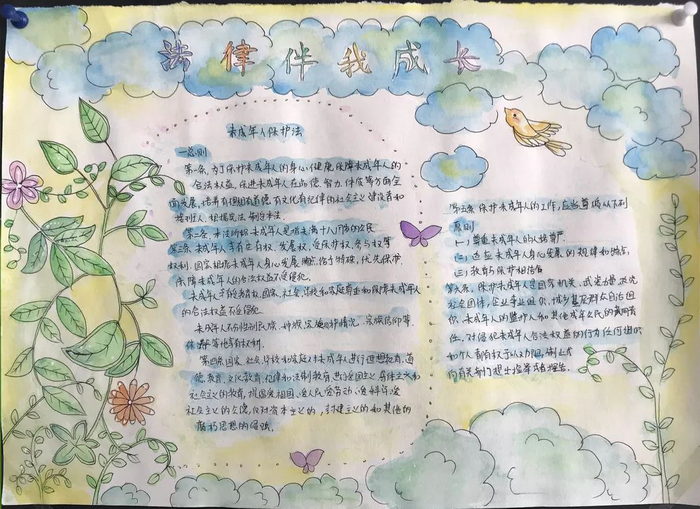 法律伴我成长
未成年人保护法
一总则
第一条,为了保护未成年人的身心健康,保障未成年人的
合法权益,促进未成年人在品德、智力、体质等方面全
面发展,培养有理想有道德、有文化有纪律的社会主义建设者和
接班人,根据宪法,制定本法。
第二条 本法所称未成年人是指未满十八周岁的公民
第三条 未成年人享有生存权、发展权、受保护权、参与权等
权利,国家根据未成年人身心发展特点给予特殊、优先保护,
保障未成年人的合法权益不受侵犯。
未成年人享有受教育权,国家、社会、学校和家庭尊重和保障未成年人
的合法权益不受侵犯。
未成年人不分性别、民族、种族、家庭财产状况、宗教信仰等,
依法平等地享有权利。
第四条 国家、社会、学校和家庭对未成年人进行理想教育、道
德教育、文化教育、纪律和法制教育,进行爱国主义、集体主义和
社会主义的教育,提倡爱祖国、爱人民、爱劳动、爱科学、爱
社会主义的公德,反对资本主义的、封建主义的和其他的
腐朽思想的侵蚀。
第五条 保护未成年人的工作,应当遵循以下列
原则
(一)尊重未成年人的人格尊严
(二)适应未成年人身心发展的规律和特点;
(三)教育与保护相结合
第六条,保护未成年人,是国家机关、武装力量、政党
社会团体、企业事业组织、城乡基层群众自治组
织、未成年人的监护人和其他成年公民的共同责
任,对侵犯未成年人合法权益的行为,任何组织
和个人都有权予以劝阻、制止或
向有关部门提出检举或者控告。